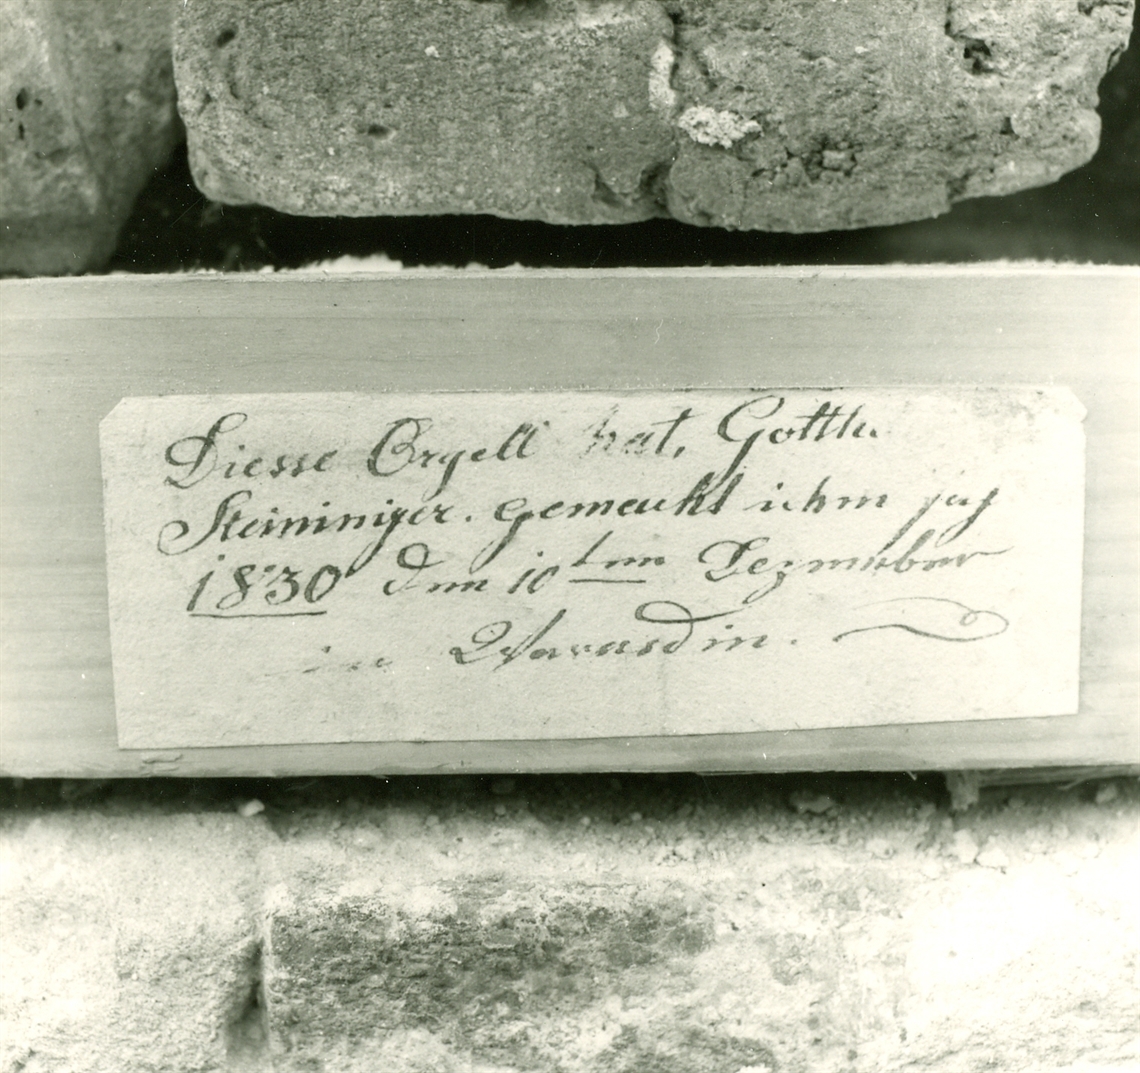 Diesse Orgell hat, Gottl.
Steininiger. gemacht ichm jag
1830 Den 10ten Dezmuber
in Warasdin.